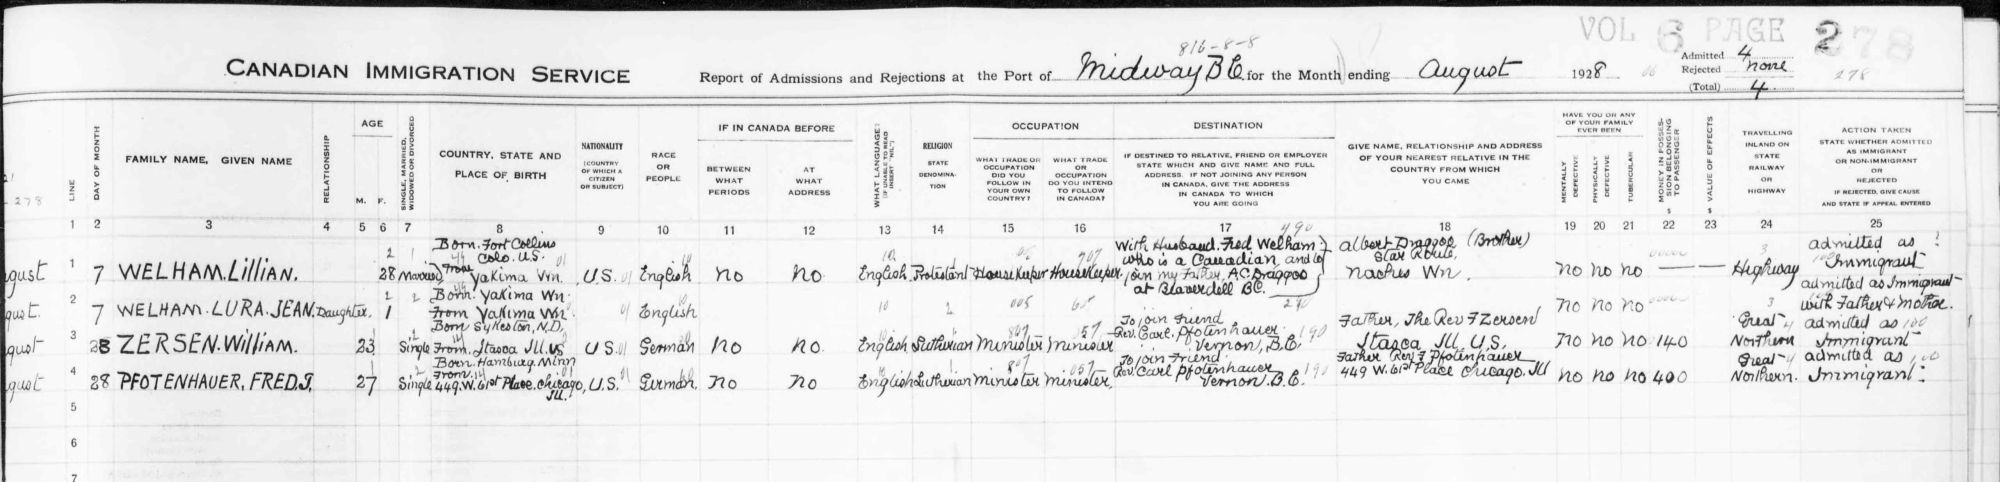 VOL 6 PAGE 278
816-8-8
CANADIAN IMMIGRATION SERVICE Report of Admissions and Rejections at the Port of Midway B C. for the Month ending August 1928
Admitted 4
Rejected none
(Total) 4
278
LINE
DAY OF MONTH
FAMILY NAME, GIVEN NAME
RELATIONSHIP
AGE
M. F.
SINGLE, MARRIED, WIDOWED OR DIVORCED
COUNTRY, STATE AND
PLACE OF BIRTH
NATIONALITY
(COUNTRY
OF WHICH A
CITIZEN
OR SUBJECT)
RACE
OR
PEOPLE
IF IN CANADA BEFORE
BETWEEN
WHAT
PERIODS
AT
WHAT
ADDRESS
WHAT LANGUAGE?
(IF UNABLE TO READ
INSERT "NIL")
RELIGION
STATE
DENOMINA-
TION
OCCUPATION
WHAT TRADE OR
OCCUPATION
DID YOU
FOLLOW IN
YOUR OWN
COUNTRY?
WHAT TRADE
OR
OCCUPATION
DO YOU INTEND
TO FOLLOW
IN CANADA?
DESTINATION
IF DESTINED TO RELATIVE, FRIEND OR EMPLOYER
STATE WHICH AND GIVE NAME AND FULL
ADDRESS. IF NOT JOINING ANY PERSON
IN CANADA, GIVE THE ADDRESS
IN CANADA TO WHICH
YOU ARE GOING
GIVE NAME, RELATIONSHIP AND ADDRESS
OF YOUR NEAREST RELATIVE IN THE
COUNTRY FROM WHICH
YOU CAME
HAVE YOU OR ANY
OF YOUR FAMILY
EVER BEEN
MENTALLY DEFECTIVE
PHYSICALLY DEFECTIVE
TUBERCULAR
MONEY IN POSSES-
SION BELONGING
TO PASSENGER
$
VALUE OF EFFECTS
$
TRAVELLING
INLAND ON
STATE
RAILWAY
OR
HIGHWAY
ACTION TAKEN
STATE WHETHER ADMITTED
AS IMMIGRANT
OR NON-IMMIGRANT
OR
REJECTED
IF REJECTED, GIVE CAUSE
AND STATE IF APPEAL ENTERED
1 2 3 4 5 6 7 8 9 10 11 12 13 14 15 16 17 18 19 20 21 22 23 24 25
490
Born. Fort Collins
Colo. U.S.
From
Yakima Wn.
1 7 WELHAM. Lillian. 28 Married U.S. English no no English Protestant Housekeeper Housekeeper
With Husband. Fred Welham
who is a Canadian, and to
join my Father, A.C. Draggoo
at Beaverdell BC.
Albert Draggoo (Brother)
Star Route,
Naches Wn.
no no no — — Highway
admitted as
Immigrant
2 7 WELHAM. LURA. JEAN. Daughter. 1
Born. Yakima Wn.
From Yakima Wn.
English
no no no
admitted as Immigrant
with Father & Mother.
3 28 ZERSEN. William. 23 Single
Born Sykeston, N.D.
From. Itasca Ill. US
U S. German no no. English Lutheran Minister minister
To join Friend
Rev. Carl. Pfotenhauer
Vernon, B.C. 190
Father, The Rev F Zersen
Itasca Ill. U.S.
no no no 140
Great
Northern
admitted as
Immigrant
4 28 PFOTENHAUER, FRED. J. 27 Single
Born. Hamburg. Minn
From.
449. W. 61st Place. Chicago,
Ill.
U.S. German. no no English Lutheran minister minister.
To join Friend
Rev Carl Pfotenhauer
Vernon. B.C. 190
Father Rev F Pfotenhauer
449 W. 61st Place Chicago. Ill
no no no 400
Great
Northern.
admitted as
Immigrant
5
6
7